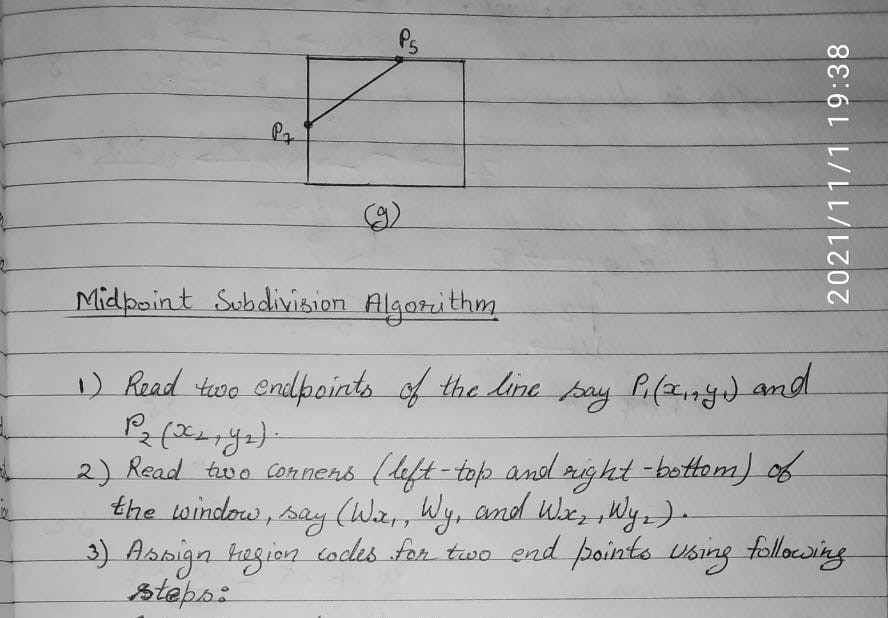 P5
P7
(g)
2021/11/1 19:38
Midpoint Subdivision Algorithm
1) Read two endpoints of the line say P1(x1,y1) and
P2(x2,y2).
2) Read two corners (left-top and right-bottom) of
the window, say (Wx1, Wy1 and Wx2, Wy2).
3) Assign region codes for two end points using following
steps: